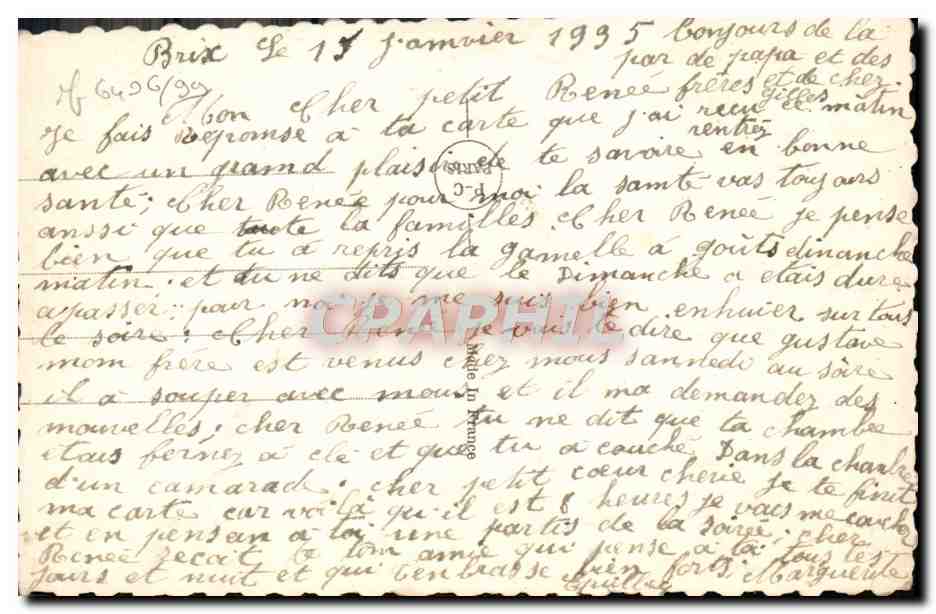 Brix Le 17 Janvier 1935 bonjours de la
par de papa et des
frères et de chez
gilles
Mf 6496/99
Mon Cher petit Renée
Je fais Réponse à ta carte que j'ai reçu ce mâtin
avec un grand plaisir de te savoire rentrez en bonne
santé; Cher Renée pour moi la samté vas toujours
aussi que toute la familles. Cher Renée je pense
bien que tu a repris la gamelle à goûts dimanche
matin. et tu ne dits que le Dimanche a etais dure
a passer; par je me suis bien enhuier sur tous
le soire; Cher Renée je vais te dire que gustave
mom frére est venus chez mous sannedi au sôire
il à souper avec mous et il ma demandez des
mouvelles; cher Renée tu ne dit que ta chambre
étais fernez à clé et que tu à couché Dans la chanbre
d'un camarade. cher petit cœur cherie je te finit
ma carte car voilà qu'il est 8 heures je vais me couche
et en pensan à toi une partis de la soireé; cher
Reneé reçoit le tom amie qui pense à toi tous les
Jours et nuit et qui t'enbrasse bien forts. Marguerite
P-C
PARIS
Made In France
CPAPHIL